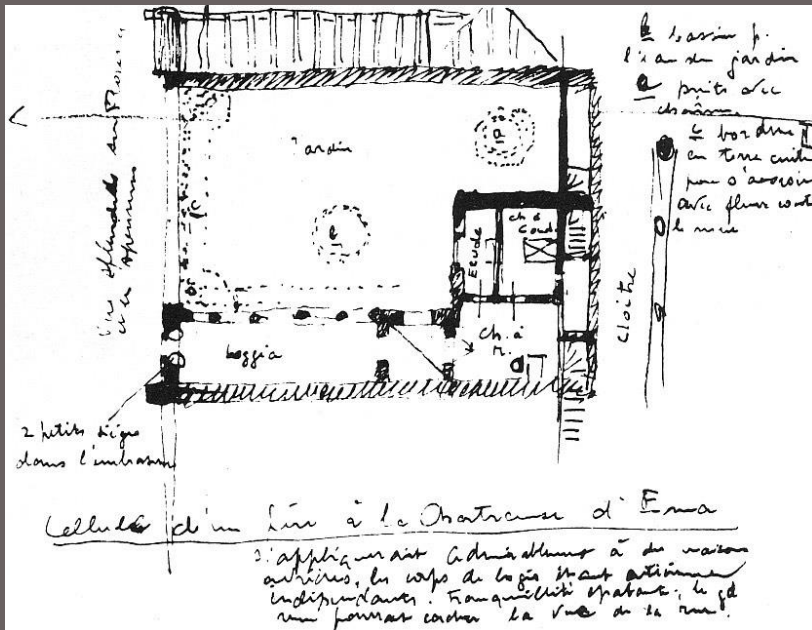 b bassin p.
l'eau du jardin
a puits avec
chaîne
c bordure
en terre cuite
pour s'asseoir
avec fleurs contre
le mur
Vue splendide sur Florence
et les Apennins
Jardin
a
b
c
Etude
ch à
Coucher
ch. à
m.
Loggia
Cloître
2 petits sièges
dans l'embrasure
Cellule d'un Père à la Chartreuse d'Ema
S'appliquerait admirablement à des maisons
ouvrières, les corps de logis étant entièrement
indépendants. Tranquillité épatante. le gd
mur pourrait cacher la vue de la rue.